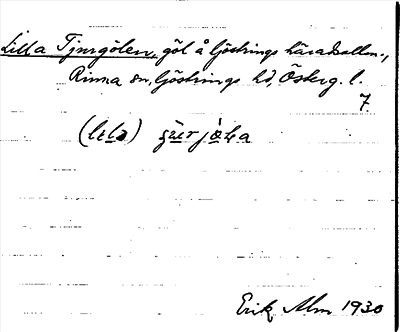 Lilla Tjurgölen, göl å Göstrings häradsallm.,
Rinna sn, Göstrings hd, Österg. l.
7
Erik Alm 1930